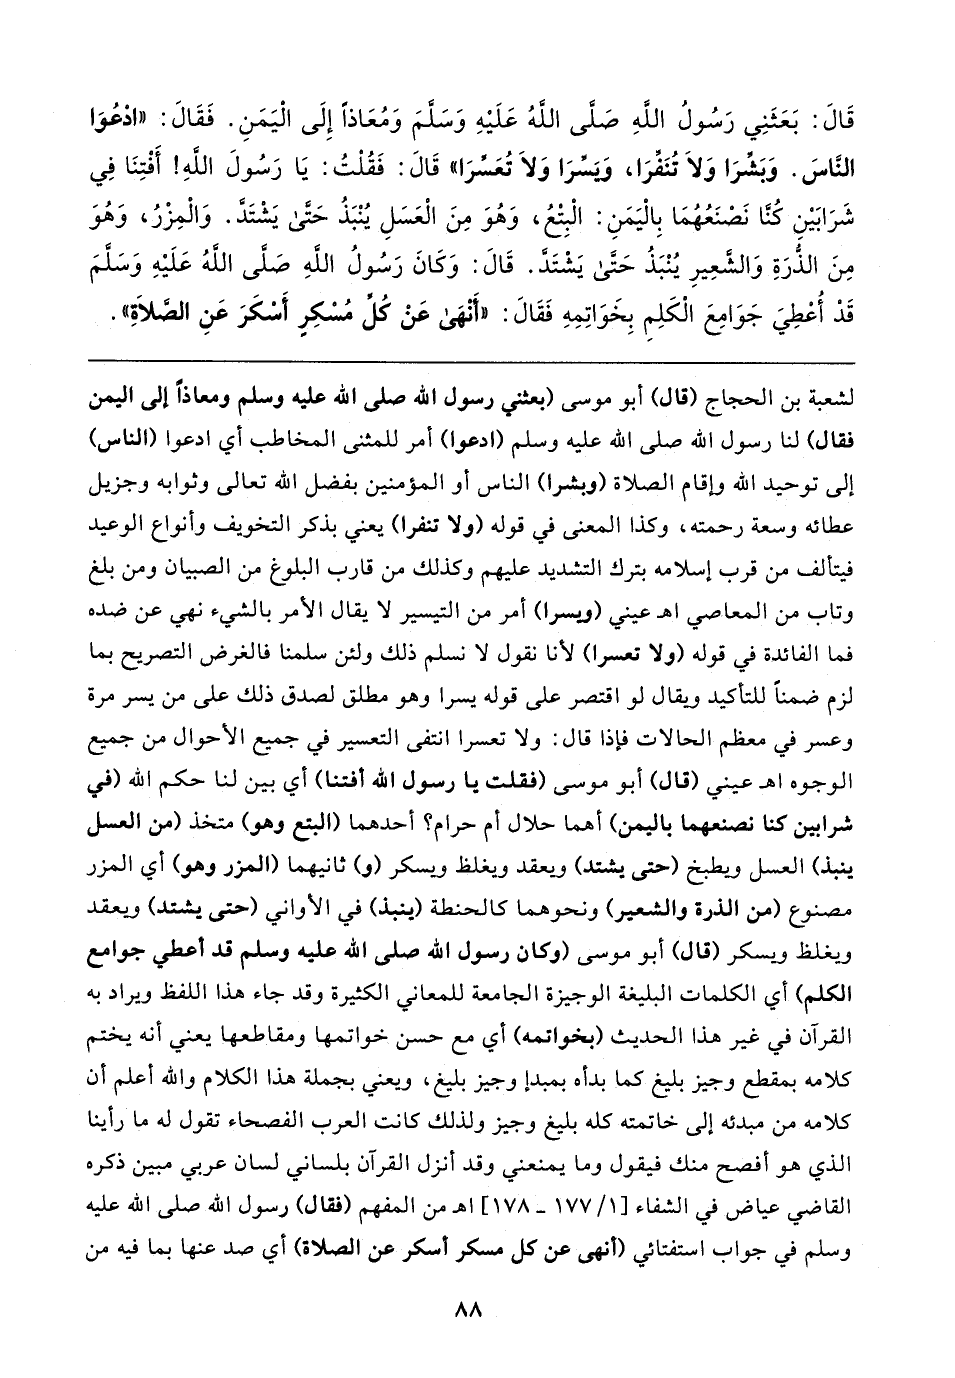 قَالَ: بَعَثَنِي رَسُولُ اللَّهِ صَلَّى اللَّهُ عَلَيْهِ وَسَلَّمَ وَمُعَاذاً إِلَى الْيَمَنِ. فَقَالَ: «ادْعُوَا
النَّاسَ. وَبَشِّرَا وَلاَ تُنَفِّرَا، وَيَسِّرَا وَلاَ تُعَسِّرَا» قَالَ: فَقُلْتُ: يَا رَسُولَ اللَّهِ! أَفْتِنَا فِي
شَرَابَيْنِ كُنَّا نَصْنَعُهُمَا بِالْيَمَنِ: الْبِتْعُ، وَهُوَ مِنَ الْعَسَلِ يُنْبَذُ حَتَّىٰ يَشْتَدَّ. وَالْمِزْرُ، وَهُوَ
مِنَ الذُّرَةِ وَالشَّعِيرِ يُنْبَذُ حَتَّىٰ يَشْتَدَّ. قَالَ: وَكَانَ رَسُولُ اللَّهِ صَلَّى اللَّهُ عَلَيْهِ وَسَلَّمَ
قَدْ أُعْطِيَ جَوَامِعَ الْكَلِمِ بِخَوَاتِمِهِ فَقَالَ: «أَنْهَىٰ عَنْ كُلِّ مُسْكِرٍ أَسْكَرَ عَنِ الصَّلاَةِ».
لشعبة بن الحجاج (قال) أبو موسى (بعثني رسول الله صلى الله عليه وسلم ومعاذاً إلى اليمن
فقال) لنا رسول الله صلى الله عليه وسلم (ادعوا) أمر للمثنى المخاطب أي ادعوا (الناس)
إلى توحيد الله وإقام الصلاة (وبشرا) الناس أو المؤمنين بفضل الله تعالى وثوابه وجزيل
عطائه وسعة رحمته، وكذا المعنى في قوله (ولا تنفرا) يعني بذكر التخويف وأنواع الوعيد
فيتألف من قرب إسلامه بترك التشديد عليهم وكذلك من قارب البلوغ من الصبيان ومن بلغ
وتاب من المعاصي اهـ عيني (ويسرا) أمر من التيسير لا يقال الأمر بالشيء نهي عن ضده
فما الفائدة في قوله (ولا تعسرا) لأنا نقول لا نسلم ذلك ولئن سلمنا فالغرض التصريح بما
لزم ضمناً للتأكيد ويقال لو اقتصر على قوله يسرا وهو مطلق لصدق ذلك على من يسر مرة
وعسر في معظم الحالات فإذا قال: ولا تعسرا انتفى التعسير في جميع الأحوال من جميع
الوجوه اهـ عيني (قال) أبو موسى (فقلت يا رسول الله أفتنا) أي بين لنا حكم الله (في
شرابين كنا نصنعهما باليمن) أهما حلال أم حرام؟ أحدهما (البتع وهو) متخذ (من العسل
ينبذ) العسل ويطبخ (حتى يشتد) ويعقد ويغلظ ويسكر (و) ثانيهما (المزر وهو) أي المزر
مصنوع (من الذرة والشعير) ونحوهما كالحنطة (ينبذ) في الأواني (حتى يشتد) ويعقد
ويغلظ ويسكر (قال) أبو موسى (وكان رسول الله صلى الله عليه وسلم قد أعطي جوامع
الكلم) أي الكلمات البليغة الوجيزة الجامعة للمعاني الكثيرة وقد جاء هذا اللفظ ويراد به
القرآن في غير هذا الحديث (بخواتمه) أي مع حسن خواتمها ومقاطعها يعني أنه يختم
كلامه بمقطع وجيز بليغ كما بدأه بمبدإ وجيز بليغ، ويعني بجملة هذا الكلام والله أعلم أن
كلامه من مبدئه إلى خاتمته كله بليغ وجيز ولذلك كانت العرب الفصحاء تقول له ما رأينا
الذي هو أفصح منك فيقول وما يمنعني وقد أنزل القرآن بلساني لسان عربي مبين ذكره
القاضي عياض في الشفاء [١/ ١٧٧ ـ ١٧٨] اهـ من المفهم (فقال) رسول الله صلى الله عليه
وسلم في جواب استفتائي (أنهى عن كل مسكر أسكر عن الصلاة) أي صد عنها بما فيه من
٨٨